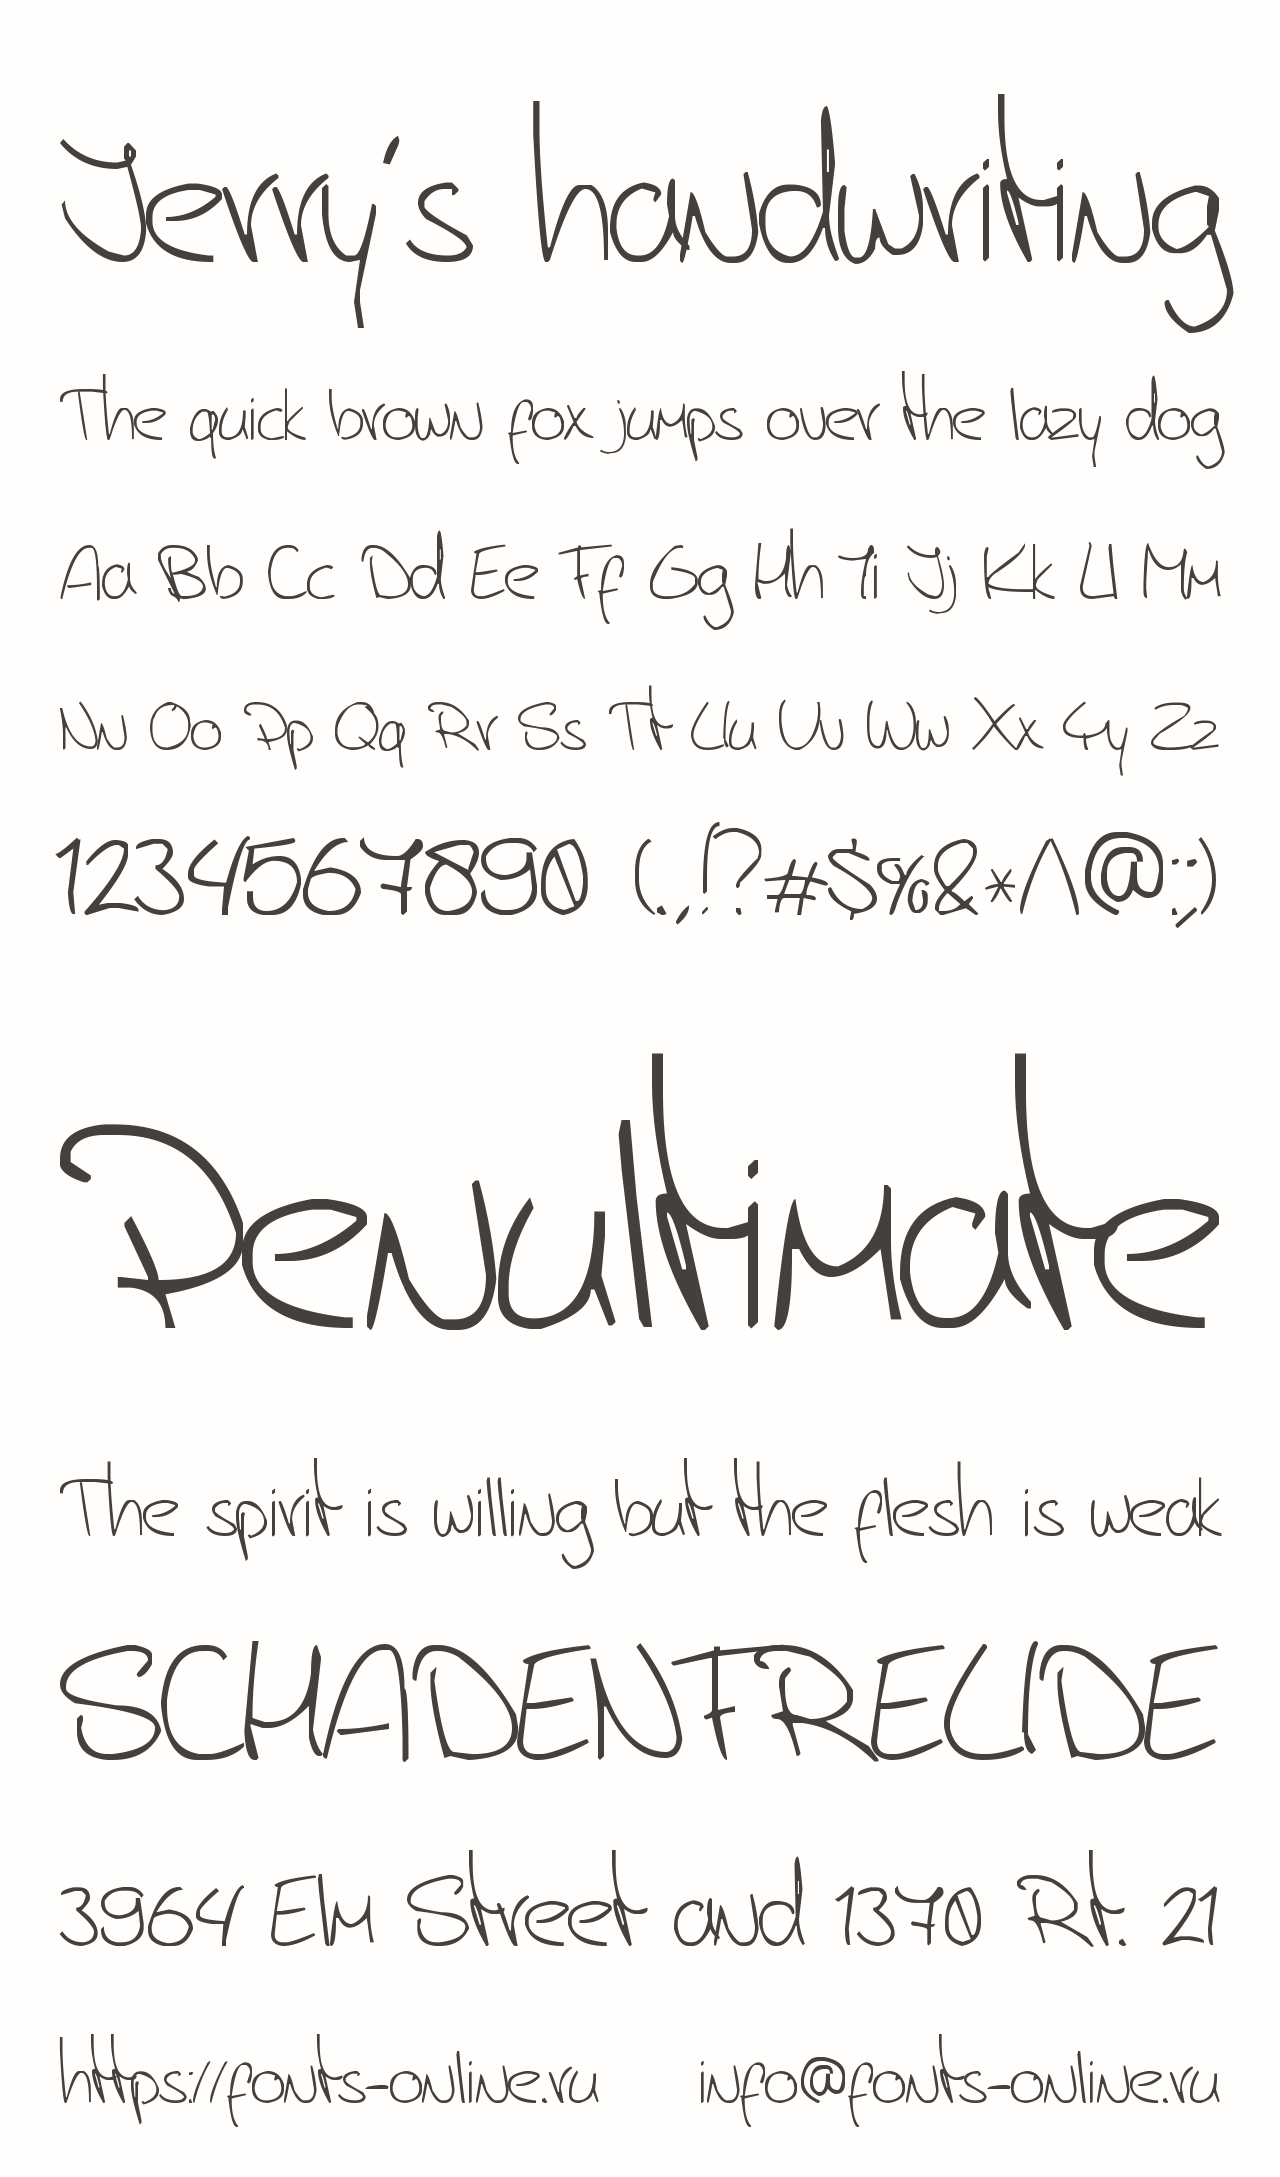 Jerry's handwriting
The quick brown fox jumps over the lazy dog
Aa Bb Cc Dd Ee Ff Gg Hh Ii Jj Kk Ll Mm
Nn Oo Pp Qq Rr Ss Tt Uu Vv Ww Xx Yy Zz
1234567890 (.,!?#$%&*^@:;)
Penultimate
The spirit is willing but the flesh is weak
SCHADENFREUDE
3964 Elm Street and 1370 Rt. 21
https://fonts-online.ru info@fonts-online.ru